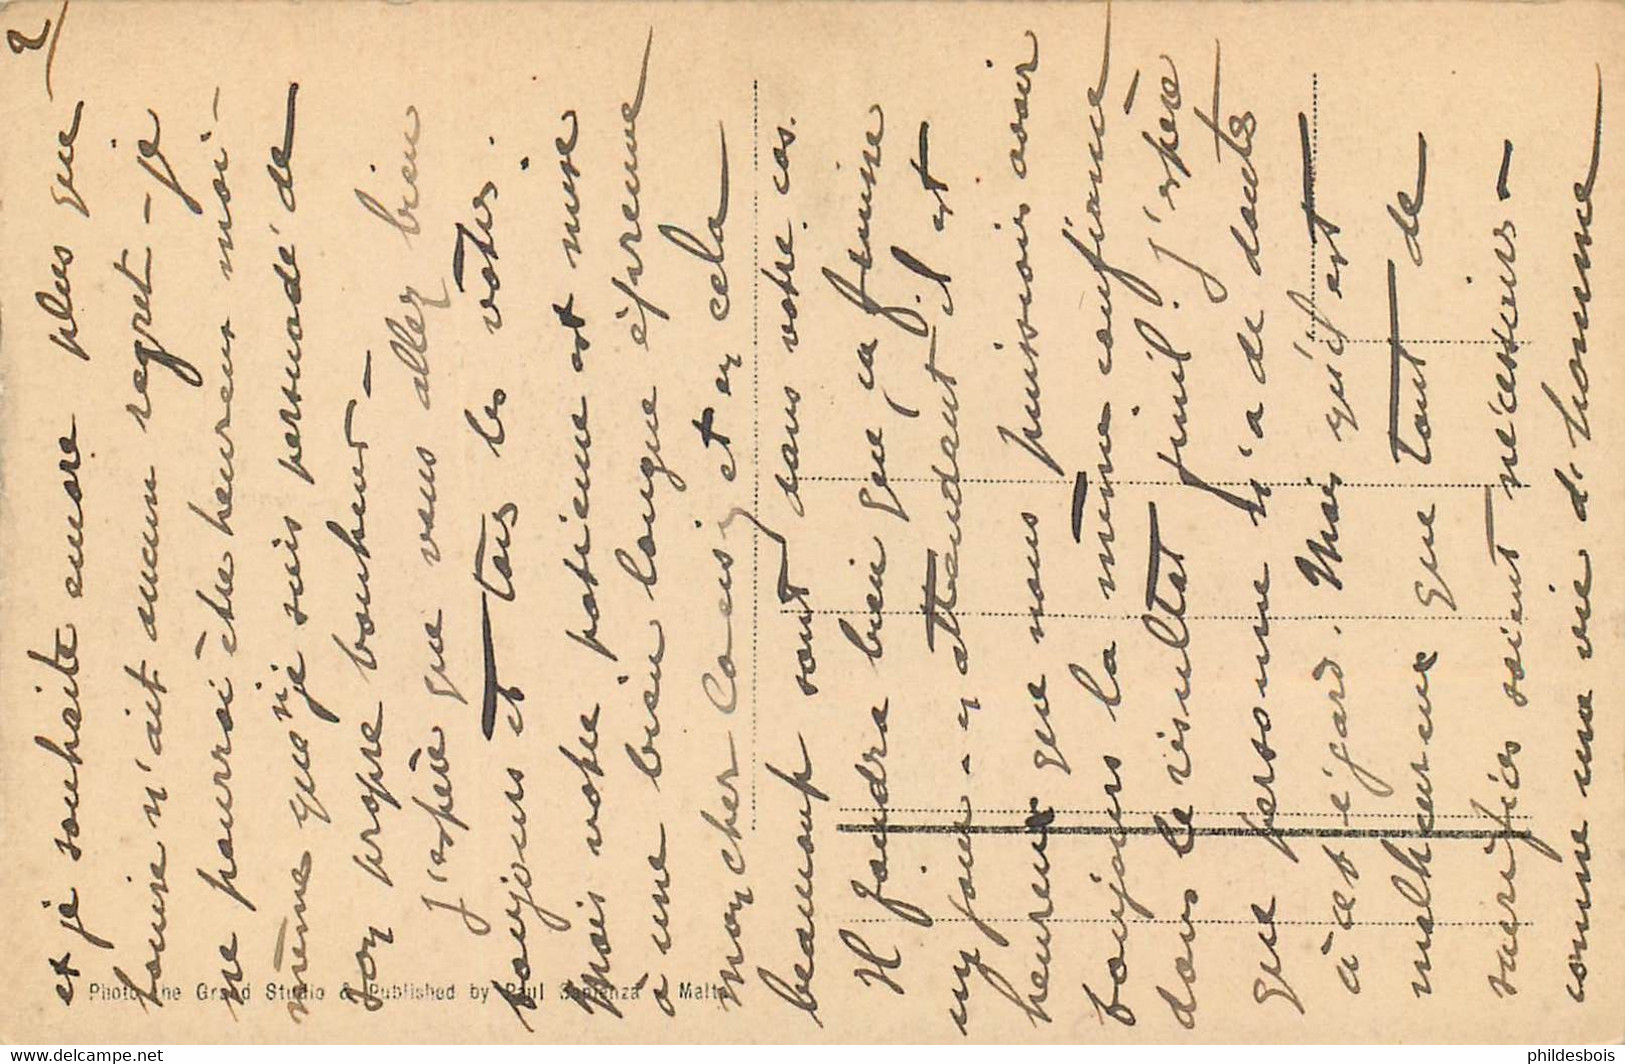 2
et je souhaite encore plus que
Louise n'ait aucun regret - je
ne pourrai être heureux moi-
même que si je suis persuadé de
son propre bonheur -
J'espère que vous allez bien
toujours et tous les votres.
Mais votre patience est mise
à une bien longue épreuve
mon cher Cousin et en cela
beaucoup sont dans votre cas.
Il faudra bien que ça finisse
un jour - en attendant il est
heureux que nous puissions avoir
toujours la même confiance
dans le résultat final. J'espère
que personne n'a de doutes
à cet égard. Mais qu'il est
malheureux que tant de
sacrifices soient nécessaires -
comme une vie d'homme
Photo The Grand Studio & Published by Paul Sapienza - Malta
philidesbois
www.delcampe.net